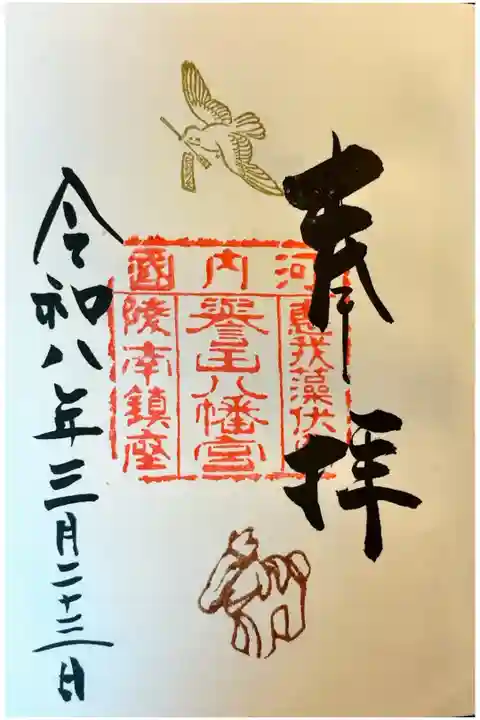 奉拝
河内國
惠我藻伏
譽田八幡宮
陵南鎮座
令和八年三月二十二日